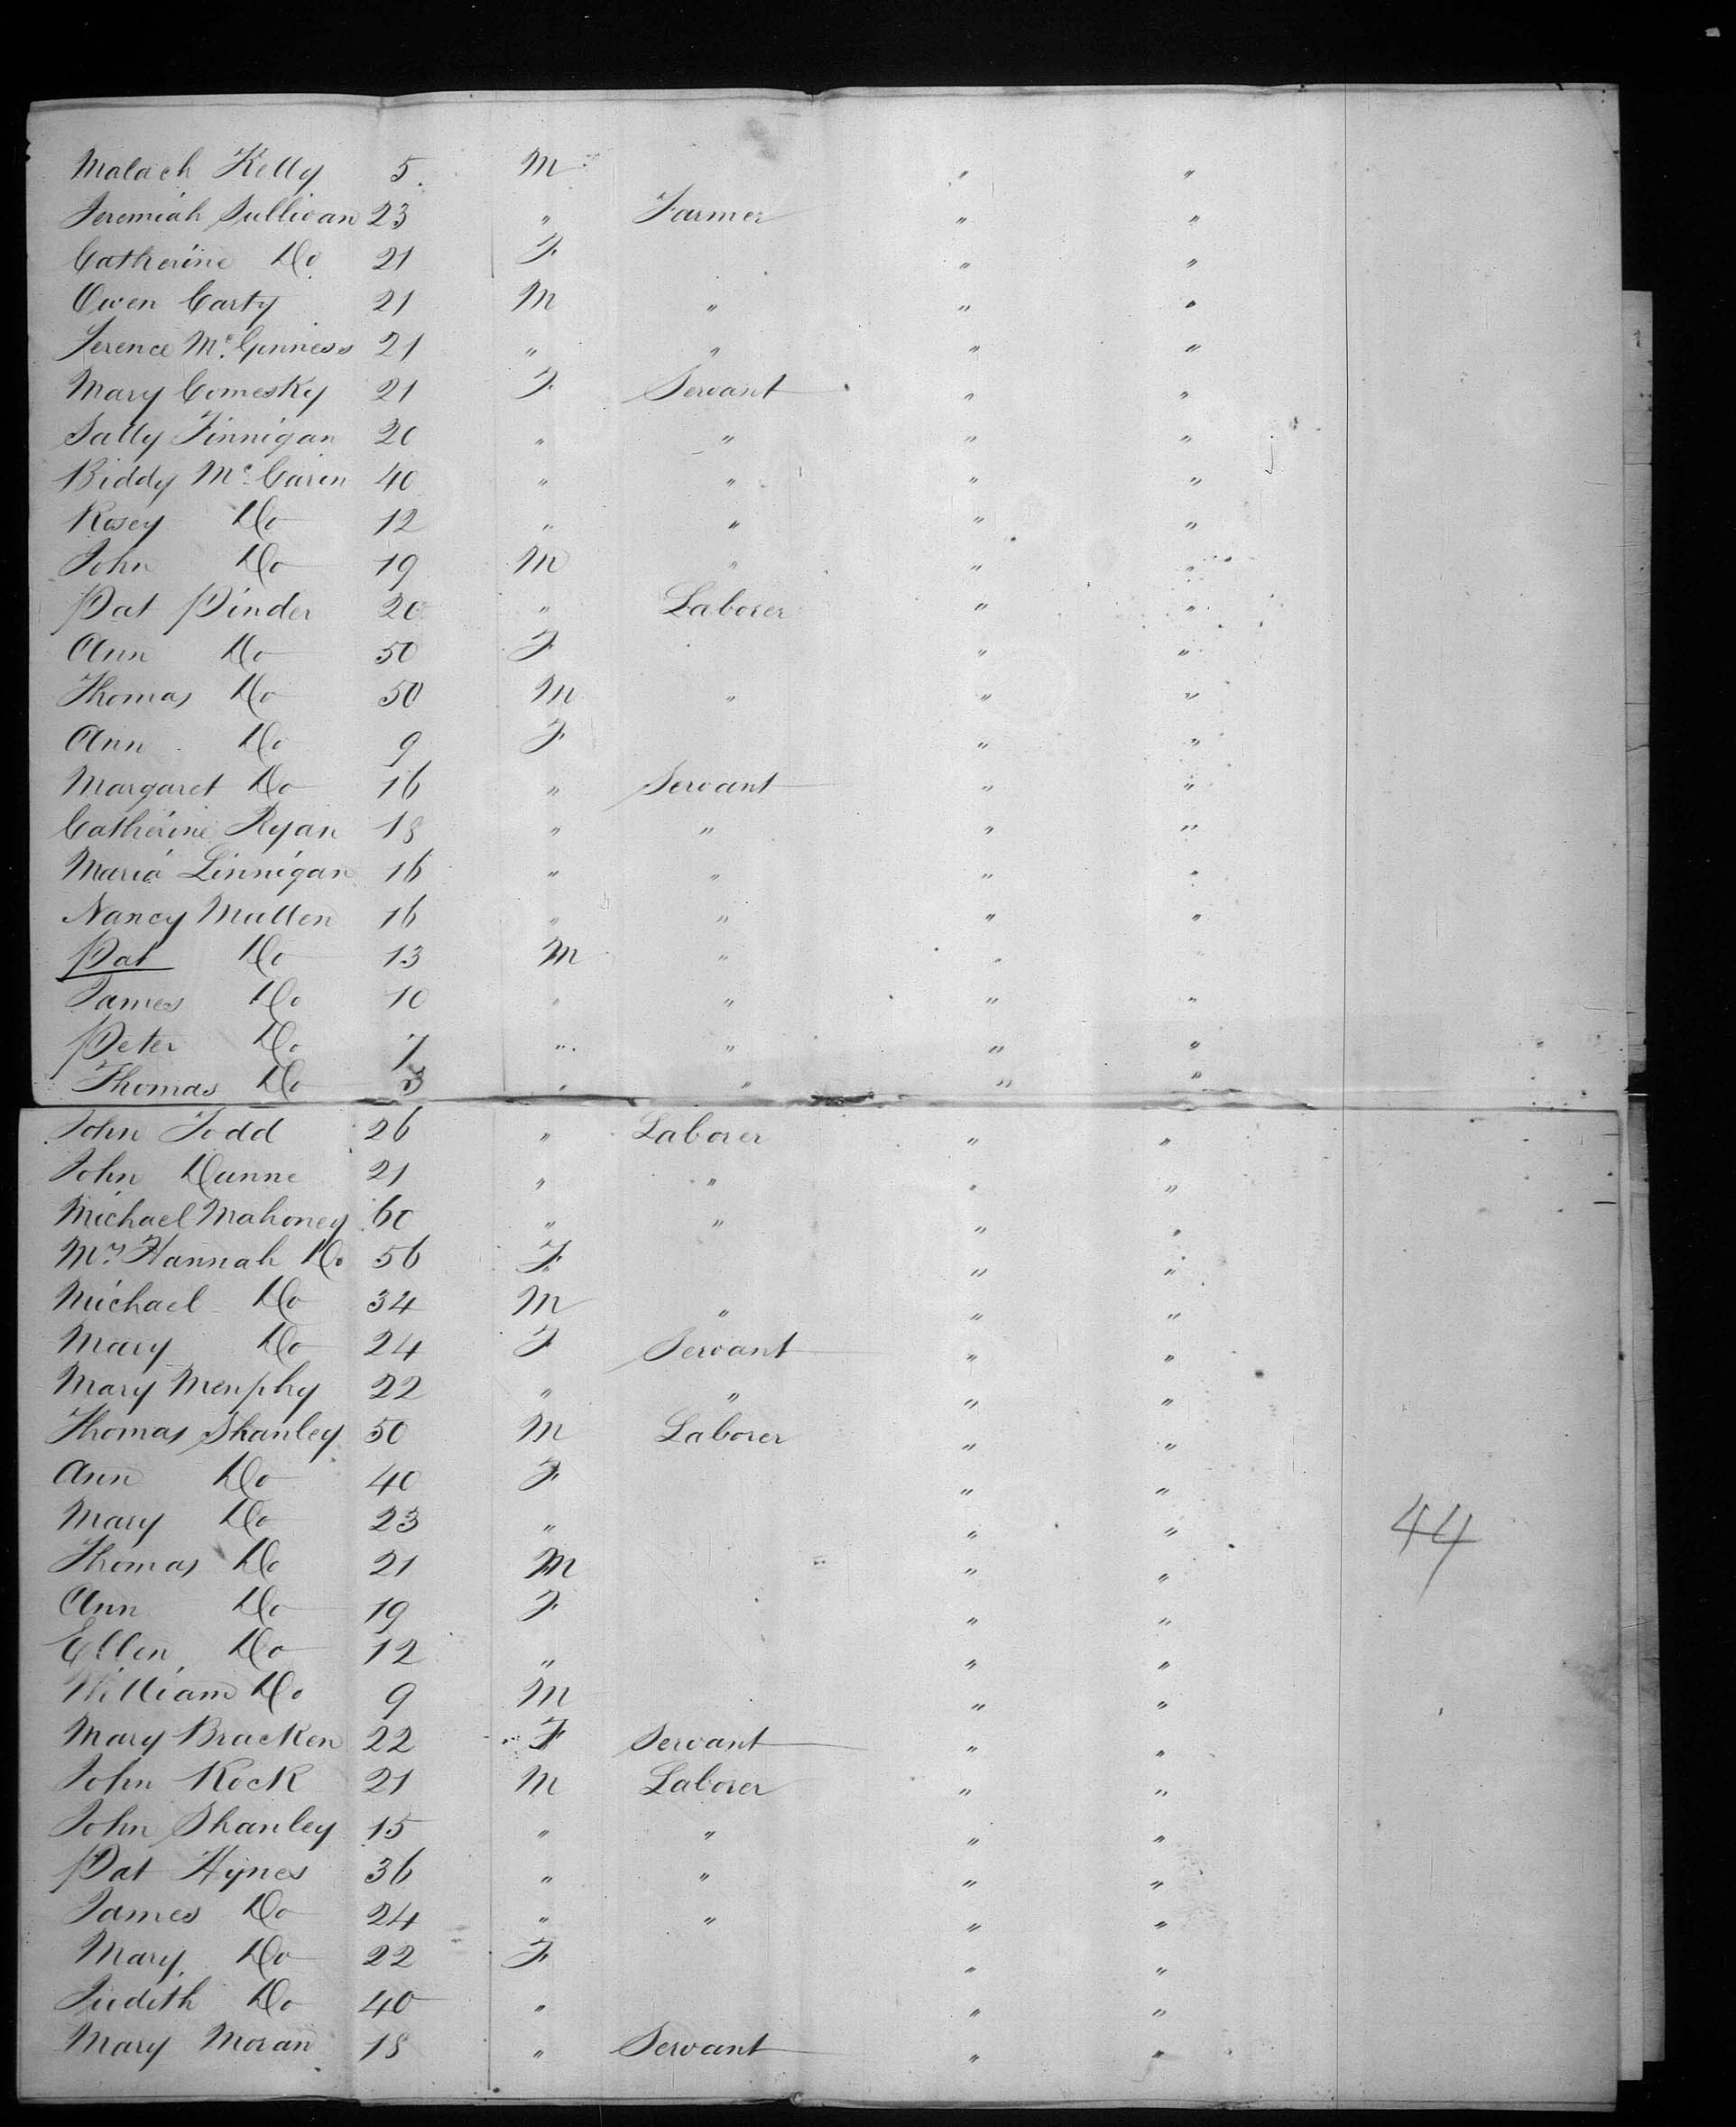 Malach Kelly 5. M " "
Jeremiah Sullivan 23 " Farmer " "
Catherine Do 21 F " "
Owen Carty 21 M " " "
Terence Mc. Ginness 21 " " " "
Mary Comesky 21 F Servant " "
Sally Finnigan 20 " " " "
Biddy Mc. Carin 40 " " " "
Rosey Do 12 " " " "
John Do 19 M " " "
Pat Pinder 20 " Laborer " "
Ann Do 50 F " "
Thomas Do 50 M " " "
Ann Do 9 F " "
Margaret Do 16 " Servant " "
Catherine Ryan 18 " " " "
Maria Linnigan 16 " " " "
Nancy Mullen 16 " " " "
Pat Do 13 M " " "
James Do 10 " " " "
Peter Do 7 " " " "
Thomas Do 3 " " " "
John Todd 26 " Laborer " "
John Dunne 21 " " " "
Michael Mahoney 60 " " " "
Mrs. Hannah Do 56 F " "
Michael Do 34 M " " "
Mary Do 24 F Servant " "
Mary Menphy 22 " " " "
Thomas Shanley 50 M Laborer " "
Ann Do 40 F " "
Mary Do 23 " " "
Thomas Do 21 M " "
44
Ann Do 19 F " "
Ellen Do 12 " " "
William Do 9 M " "
Mary Bracken 22 F Servant " "
John Rock 21 M Laborer " "
John Shanley 15 " " " "
Pat Hynes 36 " " " "
James Do 24 " " " "
Mary Do 22 F " "
Judith Do 40 " " "
Mary Moran 18 " Servant " "